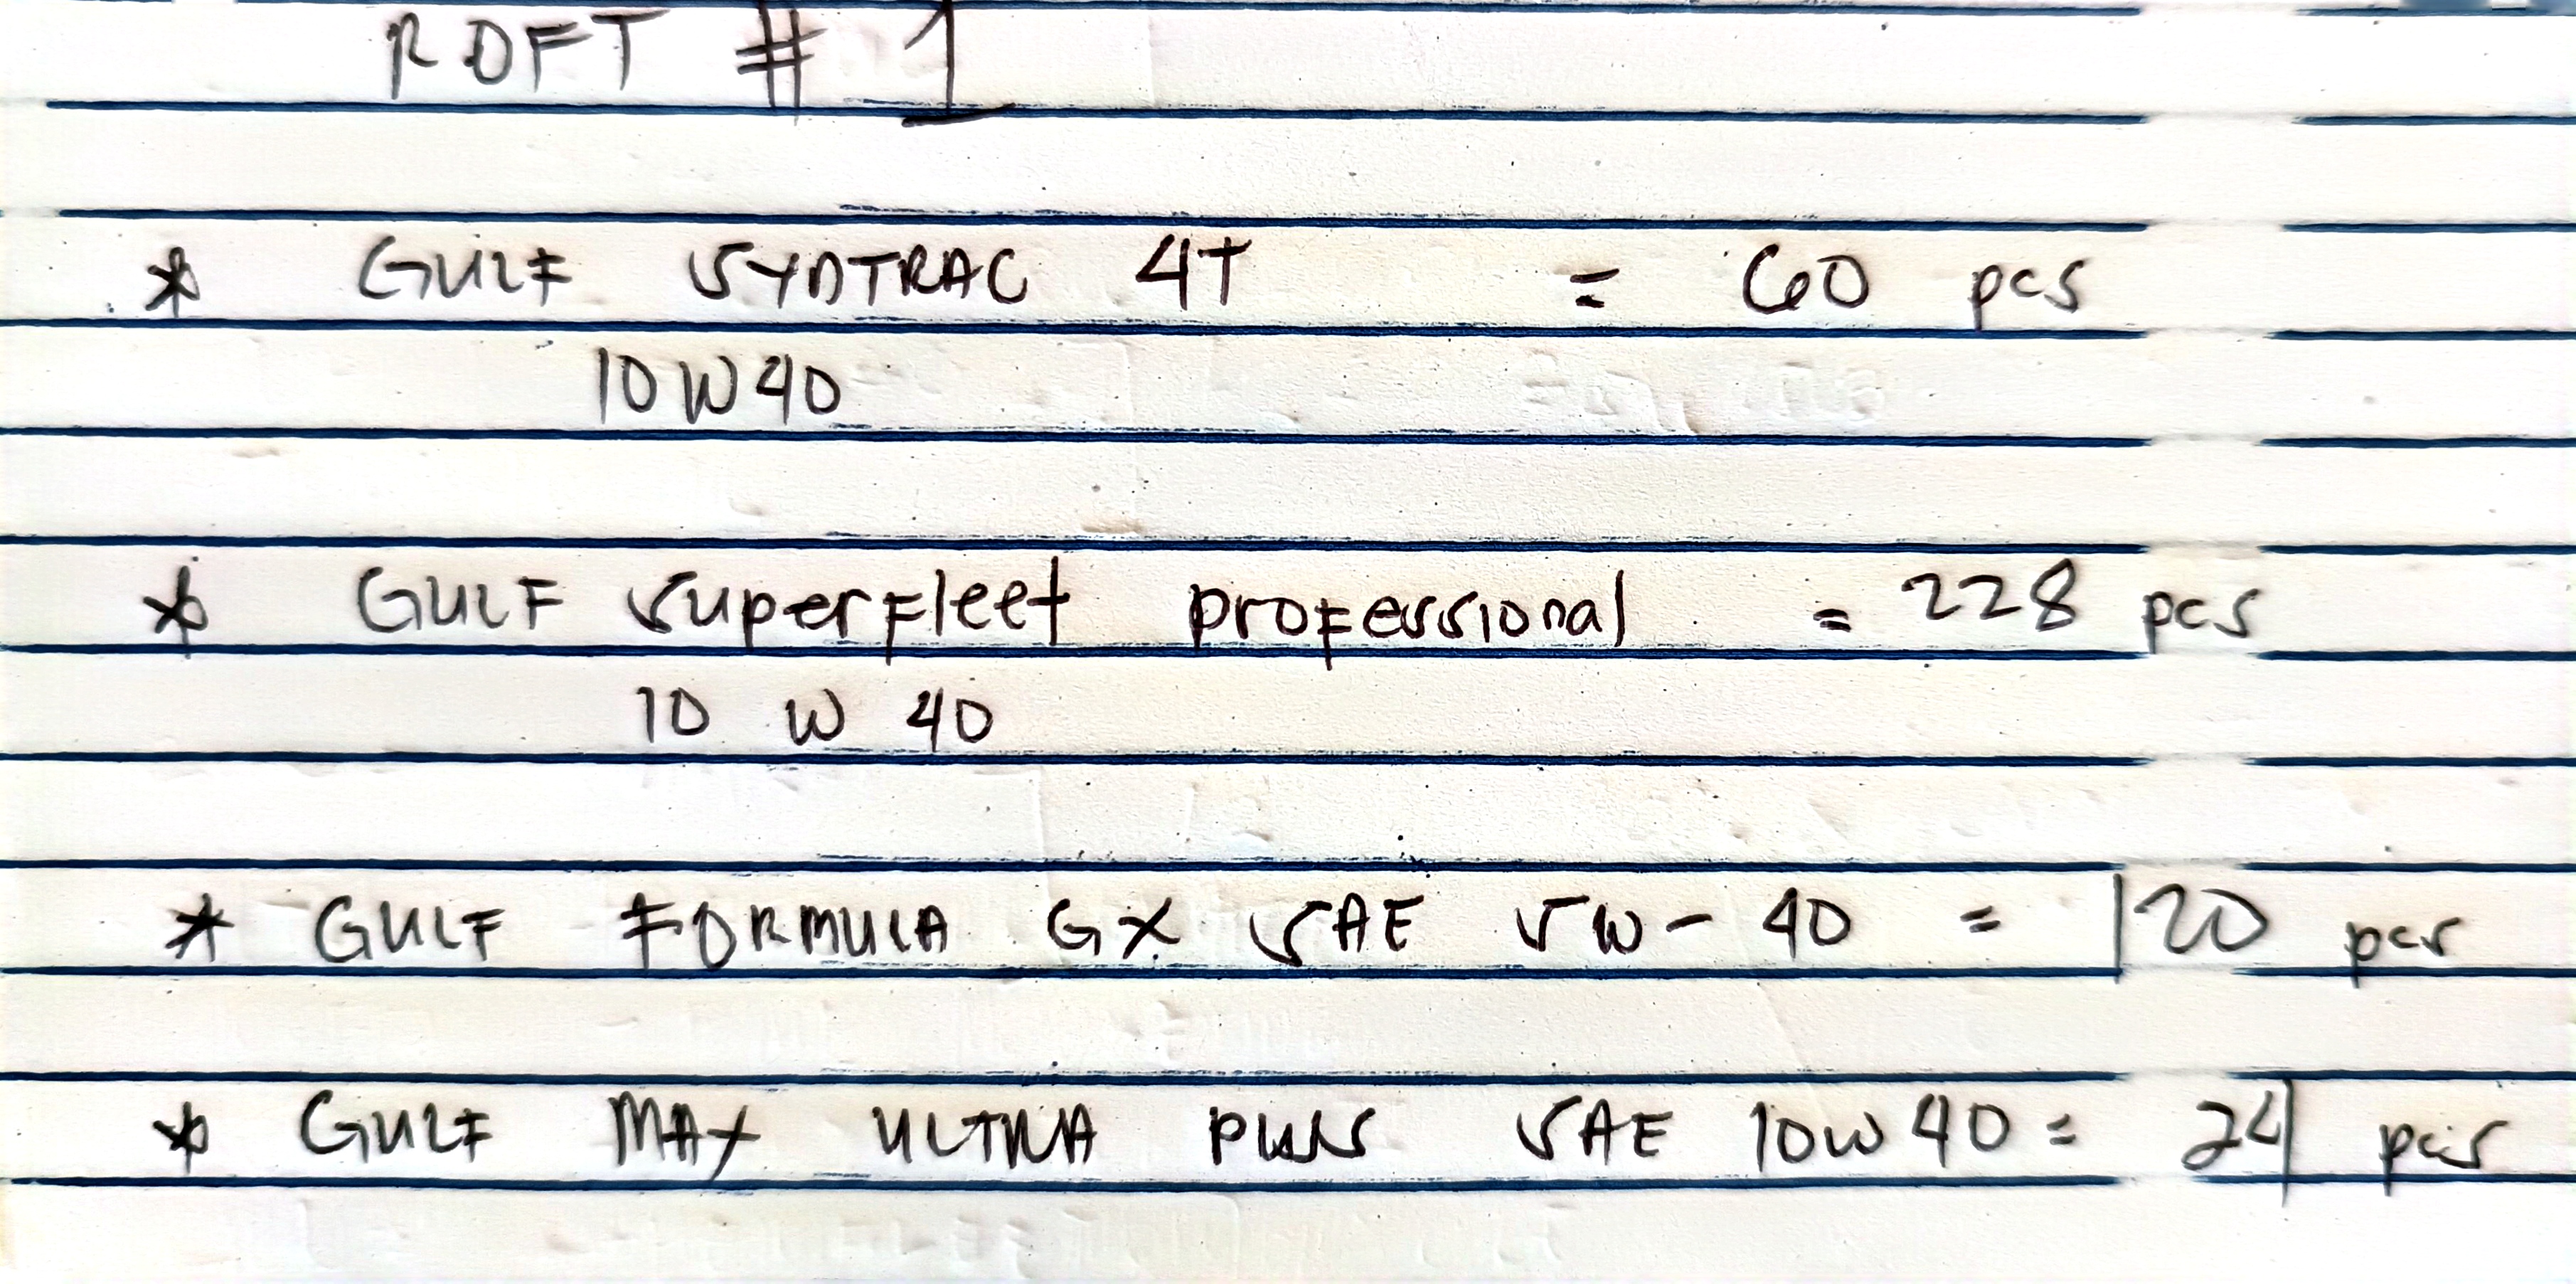 ROFT # 1
* GULF SYNTRAC 4T = 60 pcs
10W40
* GULF superfleet professional = 228 pcs
10 W 40
* GULF FORMULA GX SAE 5W-40 = 120 pcs
* GULF MAX ULTRA PLUS SAE 10W40 = 24 pcs